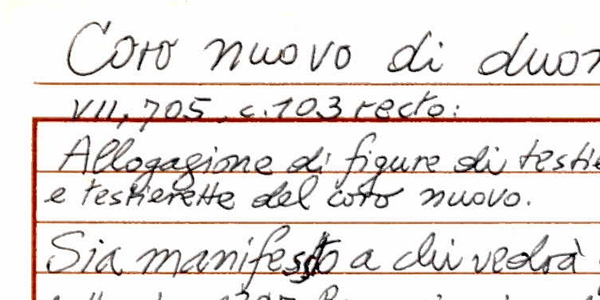 Coro nuovo di duom
VII, 705, c. 103 recto:
Allogagione di figure di testie
e testierette del coro nuovo.
Sia manifesto a chi vedrà